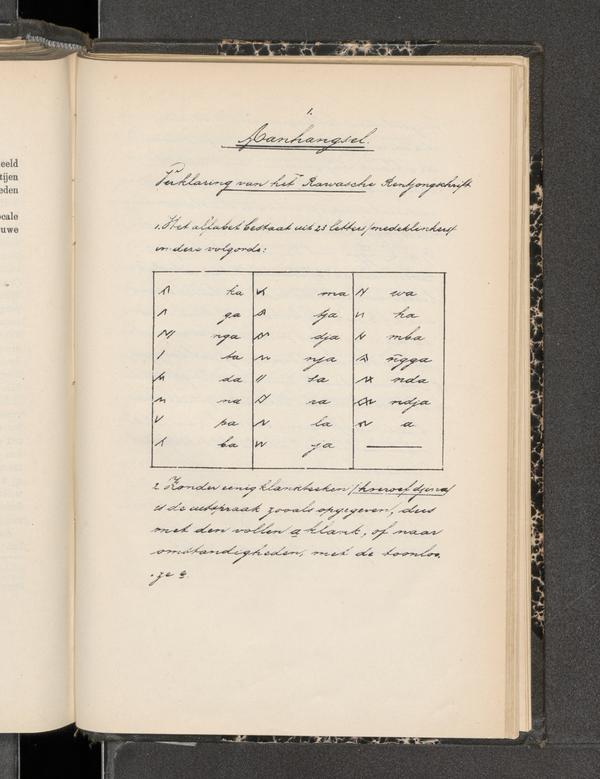 eeld
tijen
eden
ocale
uwe
1.
Aanhangsel.
Verklaring van het Rawasche Rentjongschrift
1. Het alfabet bestaat uit 23 letters (medeklinkers)
in deze volgorde:
ka ma wa
ga tja ha
nga dja mba
ta nja ñgga
da sa nda
na ra ndja
pa la a
ba ja
2. Zonder eenig klankteeken (hoeroef djerva)
is de uitspraak zooals opgegeven, dus
met den vollen a klank, of naar
omstandigheden, met de toonloo-
ze e.